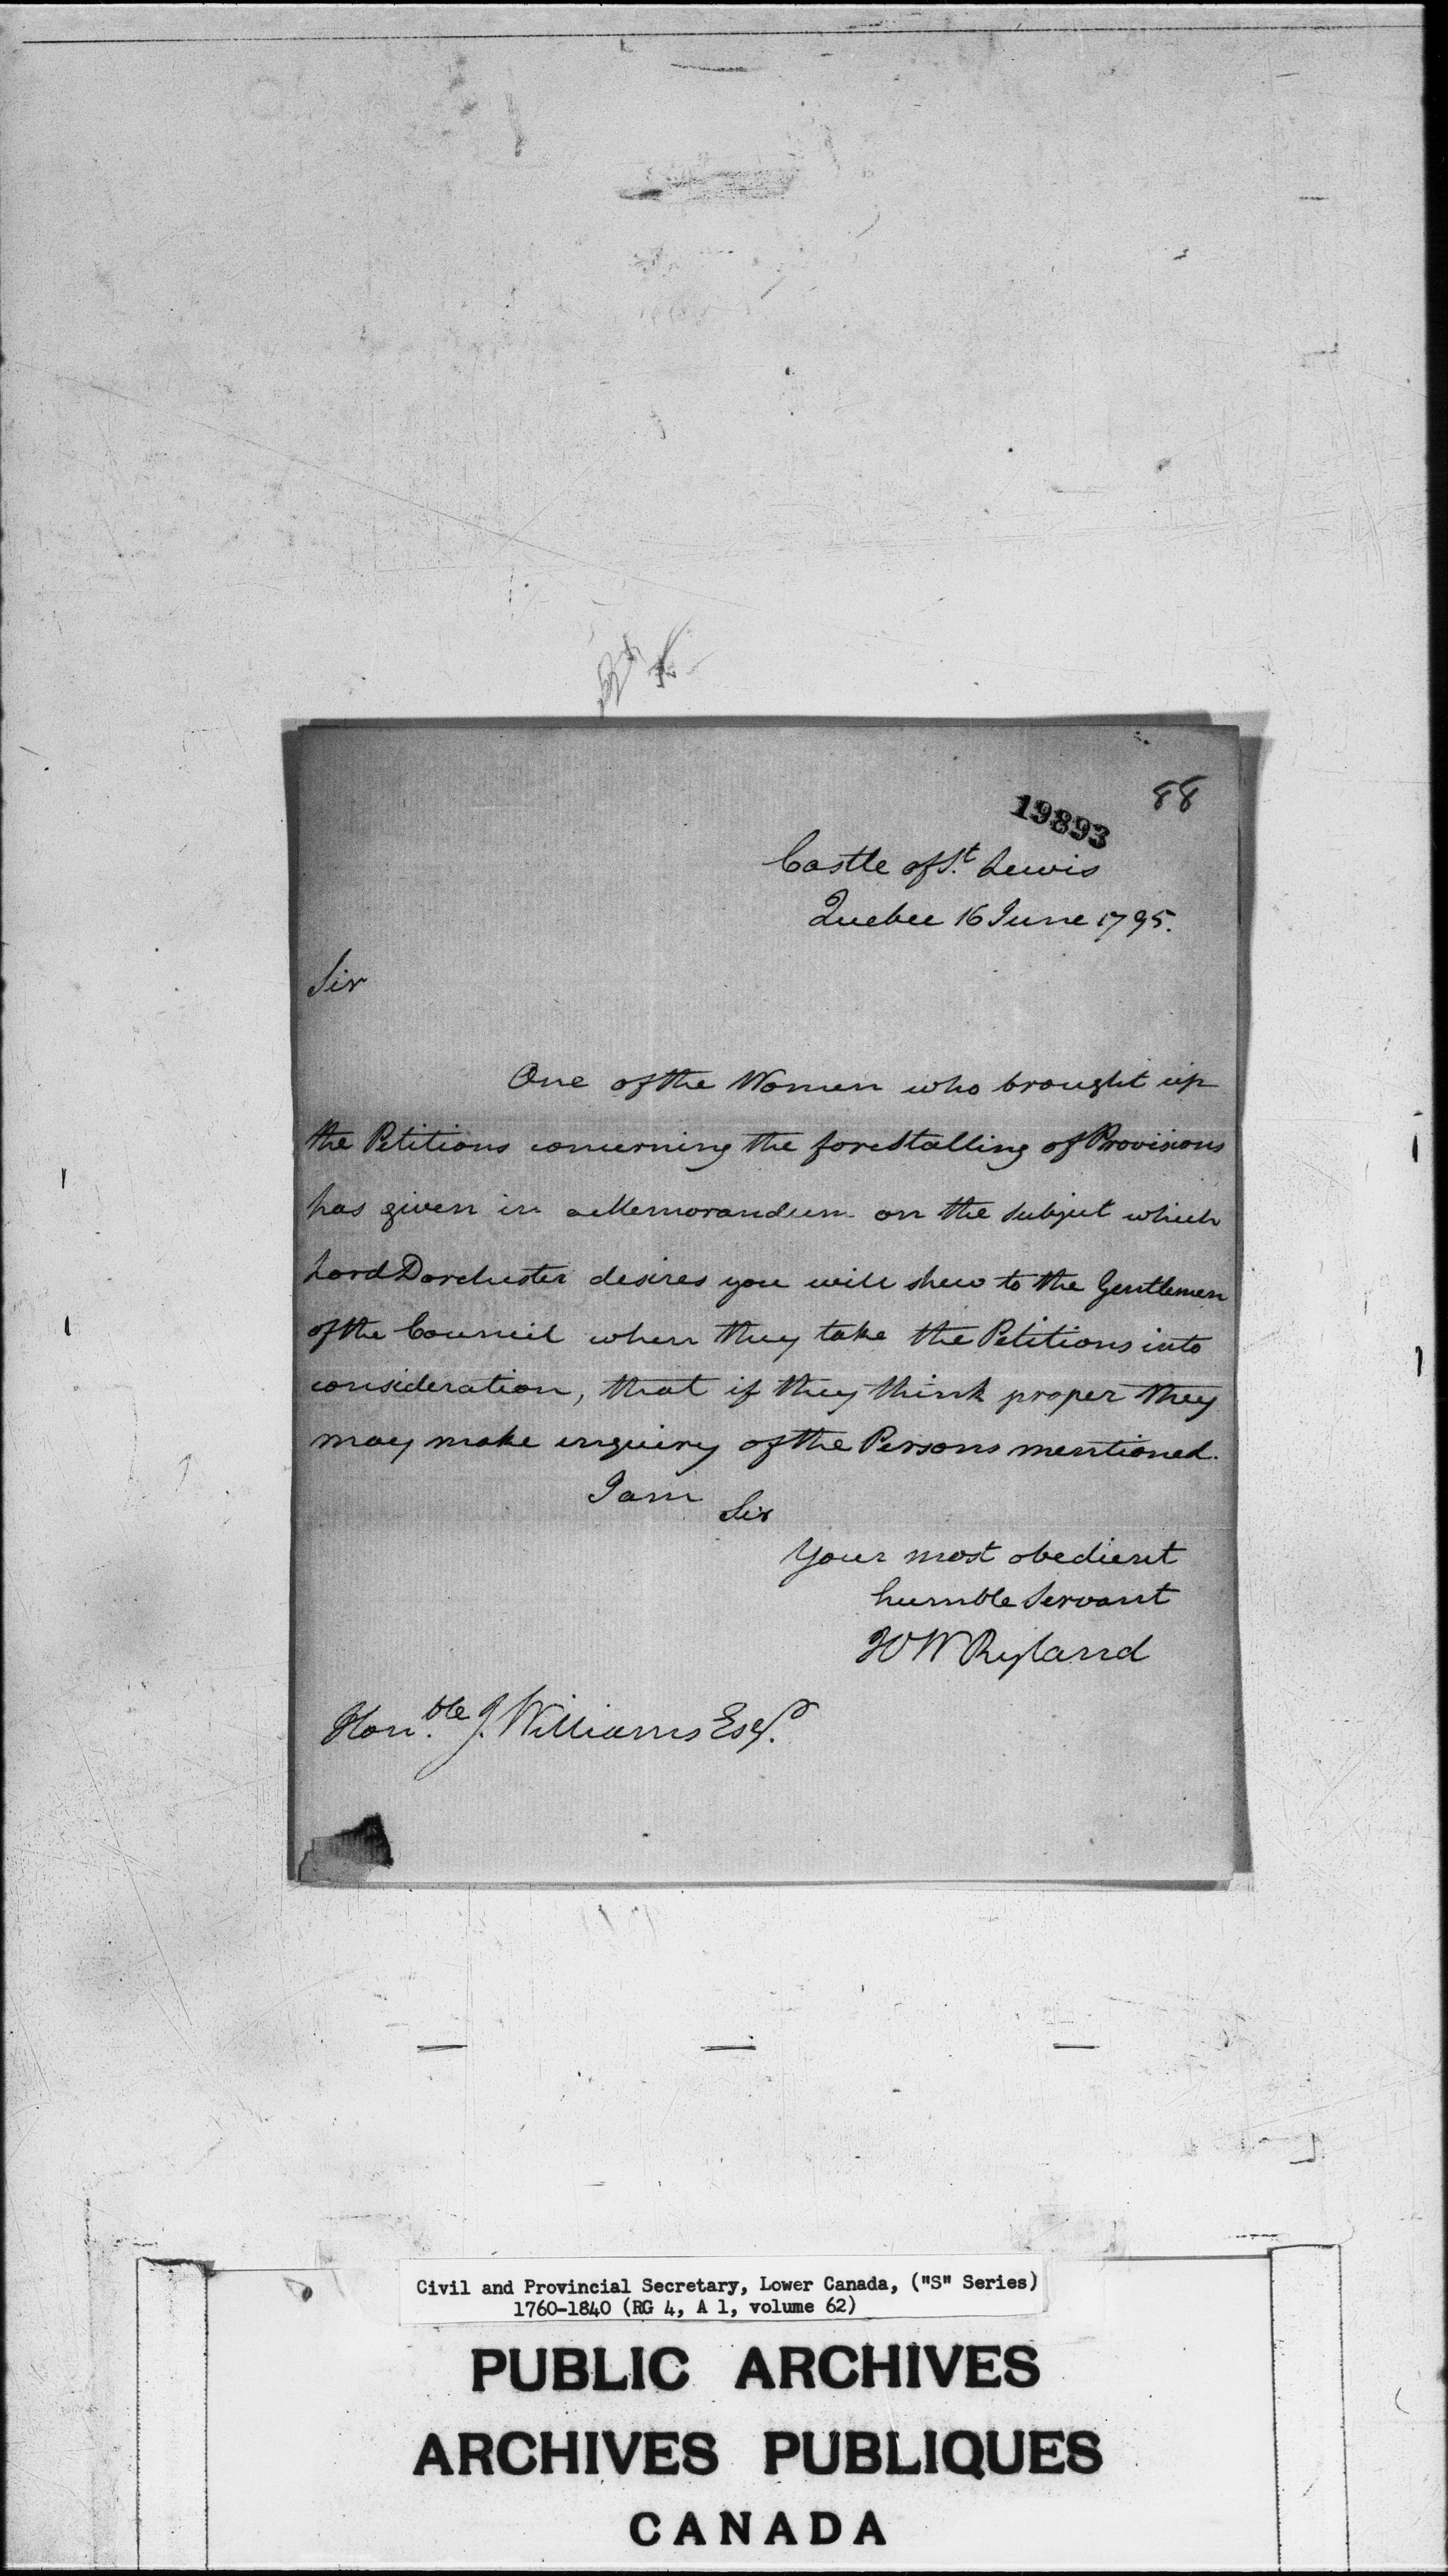 88
19893
Castle of St. Lewis
Quebec 16 June 1795.
Sir
One of the Women who brought up
the Petitions concerning the forestalling of Provisions
has given in a Memorandum on the subject which
Lord Dorchester desires you will shew to the Gentlemen
of the Council when they take the Petitions into
consideration, that if they think proper they
may make inquiry of the Persons mentioned.
I am
Sir
Your most obedient
humble Servant
HW Ryland
Honble. J. Williams Esqr.
Civil and Provincial Secretary, Lower Canada, ("S" Series)
1760-1840 (RG 4, A 1, volume 62)
PUBLIC ARCHIVES
ARCHIVES PUBLIQUES
CANADA